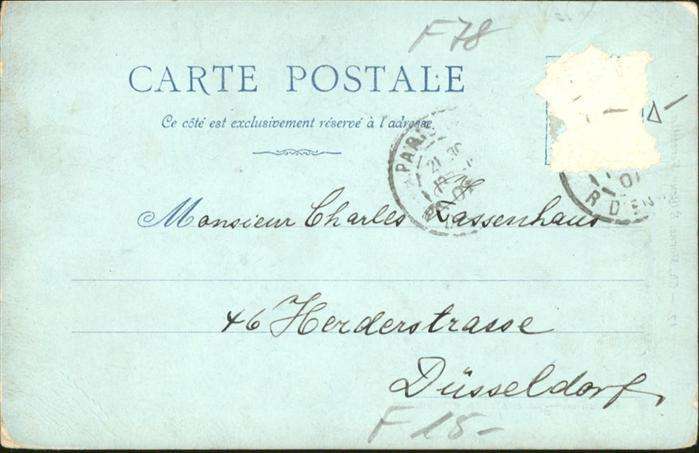 F78
CARTE POSTALE
Ce côté est exclusivement réservé à l'adresse.
PARIS
01
R D
Monsieur Charles Lassenhaus
46 Herderstrasse
Düsseldorf
F 15-